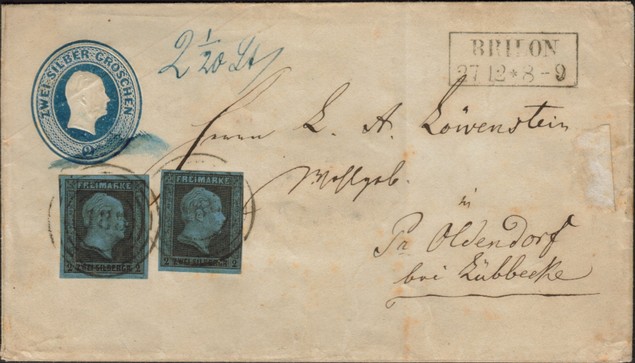 ZWEI SILBER GROSCHEN
2
2 1/20 Lt
BRILON
27 12 * 8-9
Herrn L. A. Löwenstein
Wohlgeb.
in
Pr. Oldendorf
bei Lübbecke
FREIMARKE
2 ZWEI SILBERGR. 2
FREIMARKE
2 ZWEI SILBERGR. 2